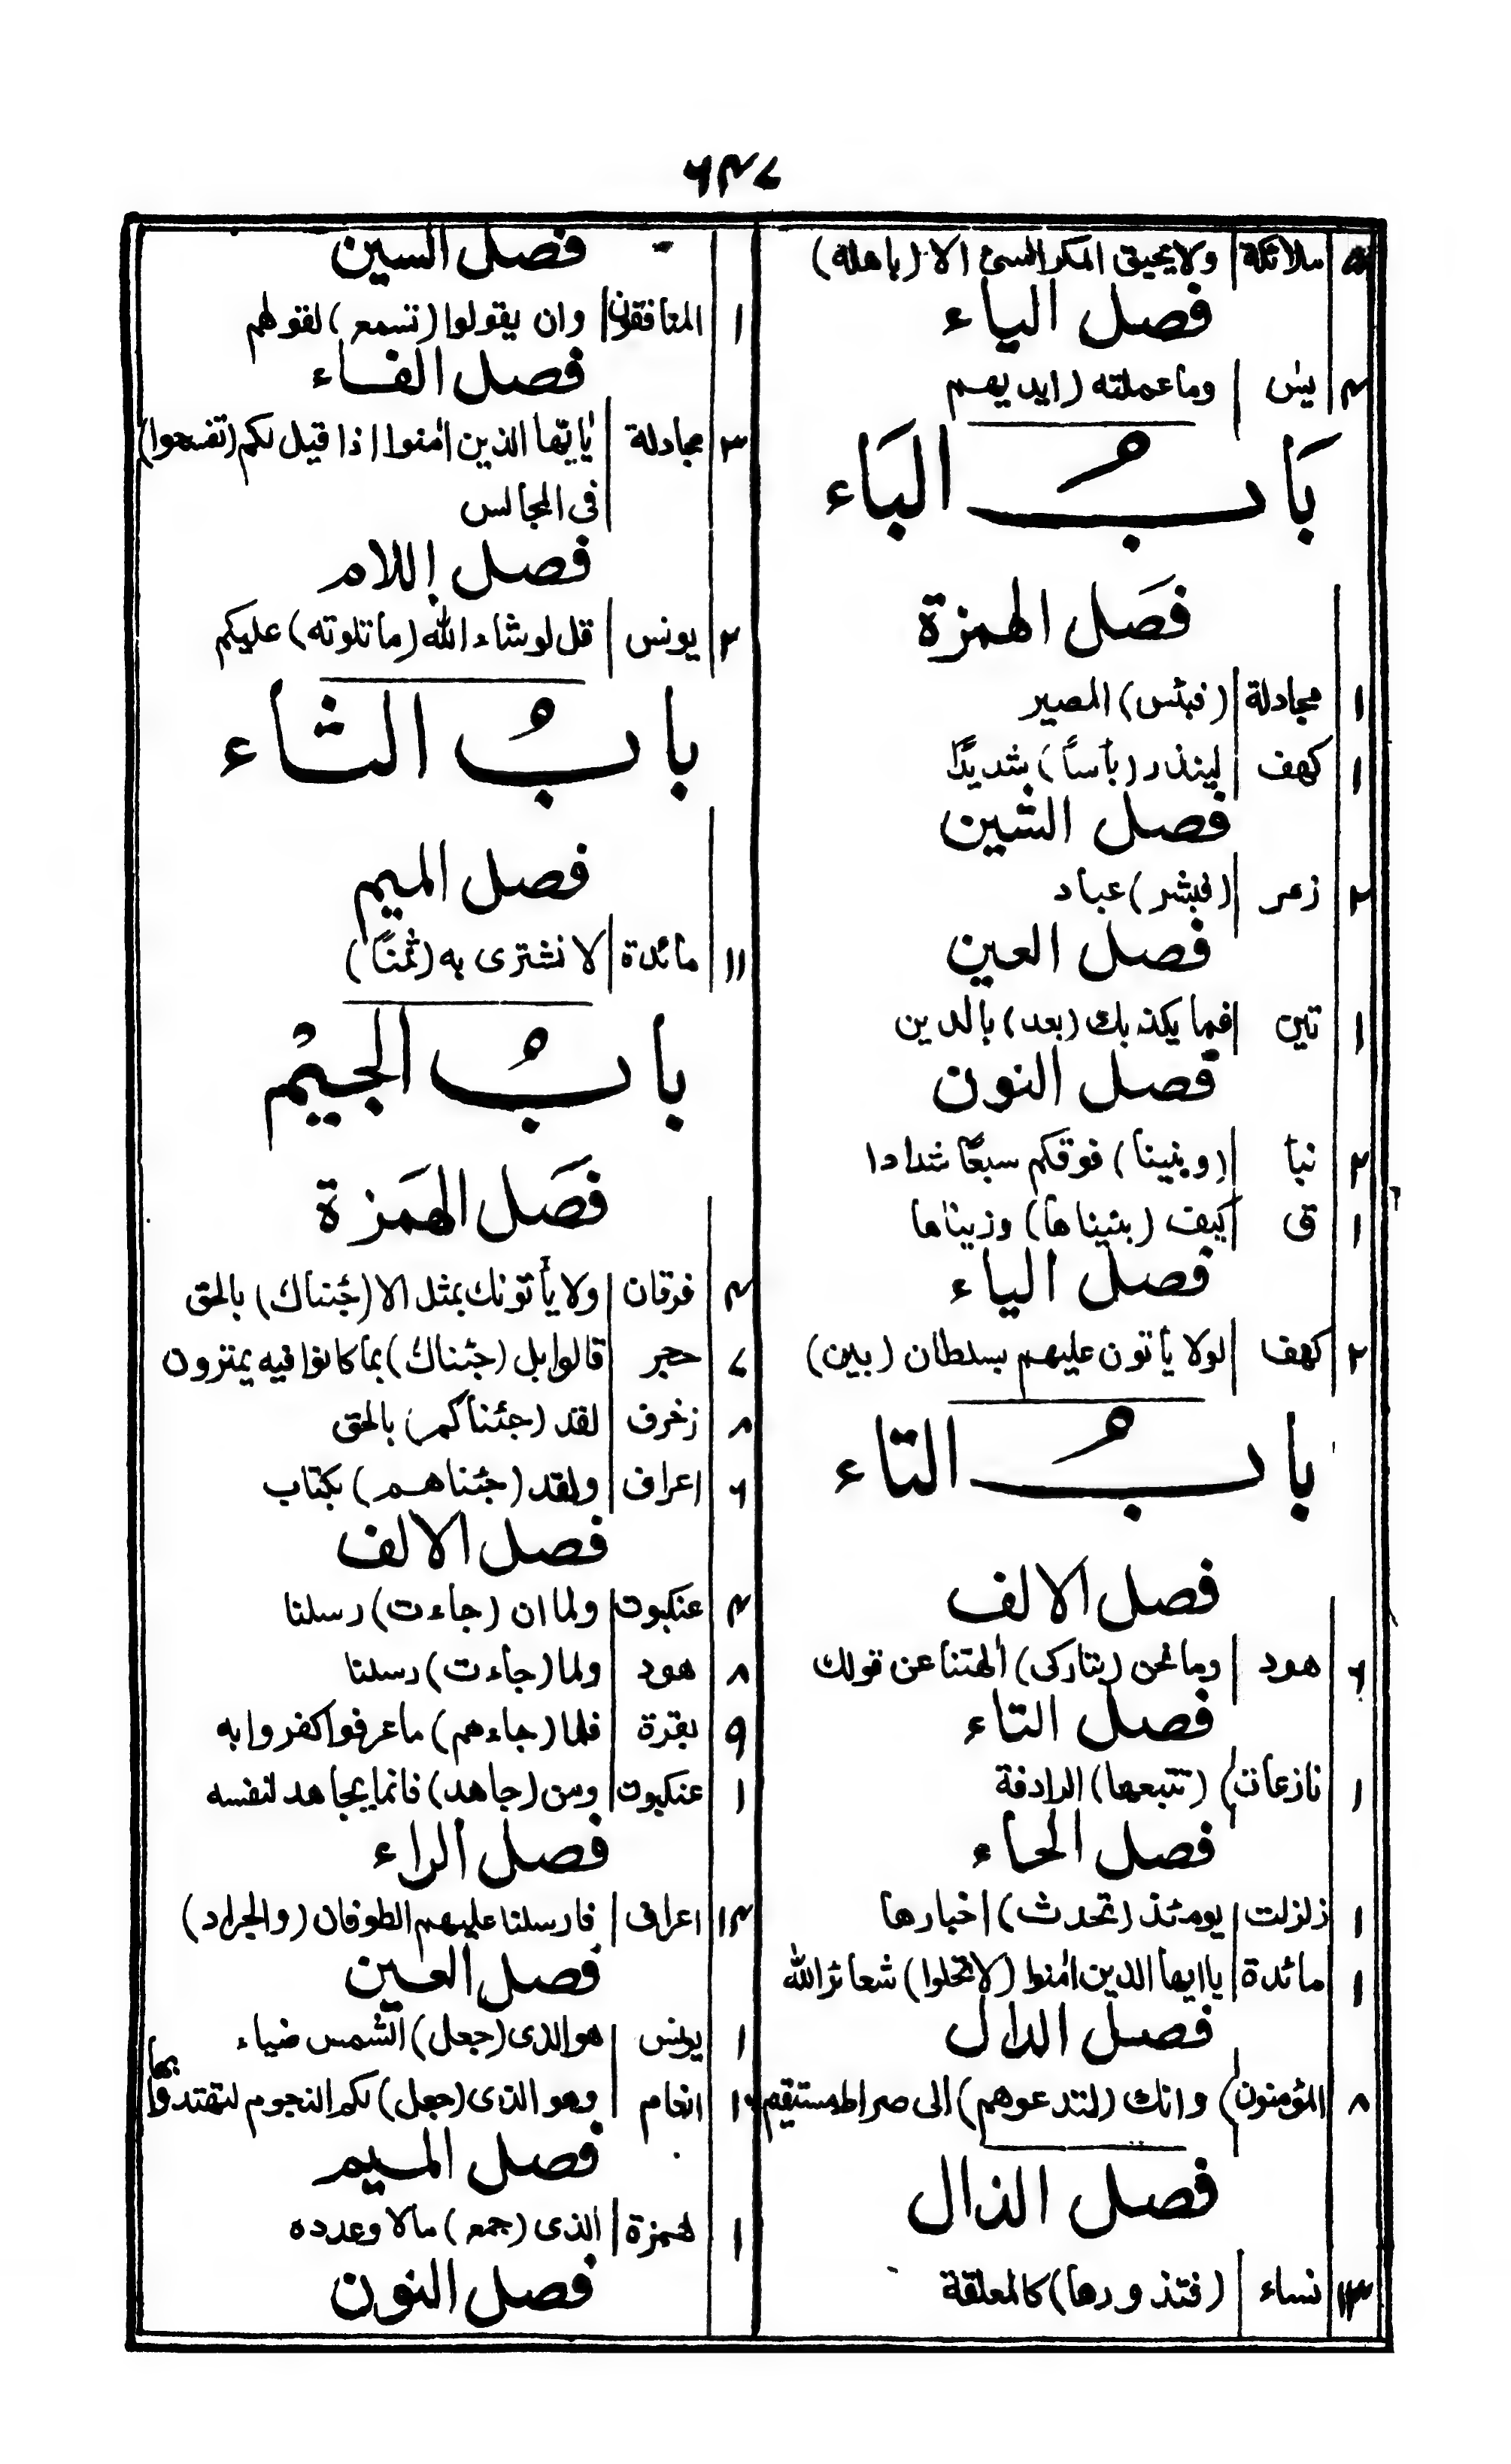 ۶۴۷
۵ ملائكة ولا يحيق المكر السئ الا (باهله)
فصل الياء
۴ يٰس وما عملته (ايديهم
بَابُ البَاء
فصَل الهمزة
۱ مجادلة (فبئس) المصير
۱ كهف لينذر (بأساً) شديدًا
فصل الشين
۲ زمر (فبشر) عباد
فصل العين
۱ تين فما يكذبك (بعد) بالدين
فصل النون
۲ نبأ (وبنينا) فوقكم سبعًا شدادا
۱ ق كيف (بنيناها) وزيناها
فصل الياء
۲ كهف لولا يأتون عليهم بسلطان (بين)
بابُ التاء
فصل الالف
۶ هود وما نحن (بتاركى) اٰلهتنا عن قولك
فصل التاء
۱ نازعات (تتبعها) الرادفة
فصل الحاء
۱ زلزلت يومئذ (تحدث) اخبارها
۱ مائدة ياايها الذين اٰمنوا (لا تحلوا) شعائر الله
فصل الدال
۸ المؤمنون وانك (لتدعوهم) الى صراط مستيقم
فصل الذال
۱۳ نساء (فتذورها) كالمعلقة
فصل السين
۱ المنافقون وان يقولوا (تسمع) لقولهم
فصل الفاء
۳ مجادلة يٰايّها الذين اٰمنوا اذا قيل لكم (تفسحوا)
فى المجالس
فصل اللام
۲ يونس قل لو شاء الله (ما تلوته) عليكم
بابُ الثاء
فصل الميم
۱۱ مائدة لا نشترى به (ثمنًا)
بابُ الجيْم
فصَل الهَمزة
۴ فرقان ولا يأتونك بمثل الا (جئناك) بالحق
۷ حجر قالوا بل (جئناك) بما كانوا فيه يمترون
۸ زخرف لقد (جئناكم) بالحق
۶ اعراف ولقد (جئناهم) بكتاب
فصل الالف
۴ عنكبوت ولما ان (جاءت) رسلنا
۸ هود ولما (جاءت) رسلنا
۹ بقرة فلما (جاءهم) ما عرفوا كفروا به
۱ عنكبوت ومن (جاهد) فانما يجاهد لنفسه
فصل الراء
۱۴ اعراف فارسلنا عليهم الطوفان (والجراد)
فصل العين
۱ يونس هو الذى (جعل) الشمس ضياء
۱۲ انعام وهو الذى (جعل) لكم النجوم لتهتدوا بها
فصل الميم
۱ همزة الذى (جمع) مالا وعدده
فصل النون